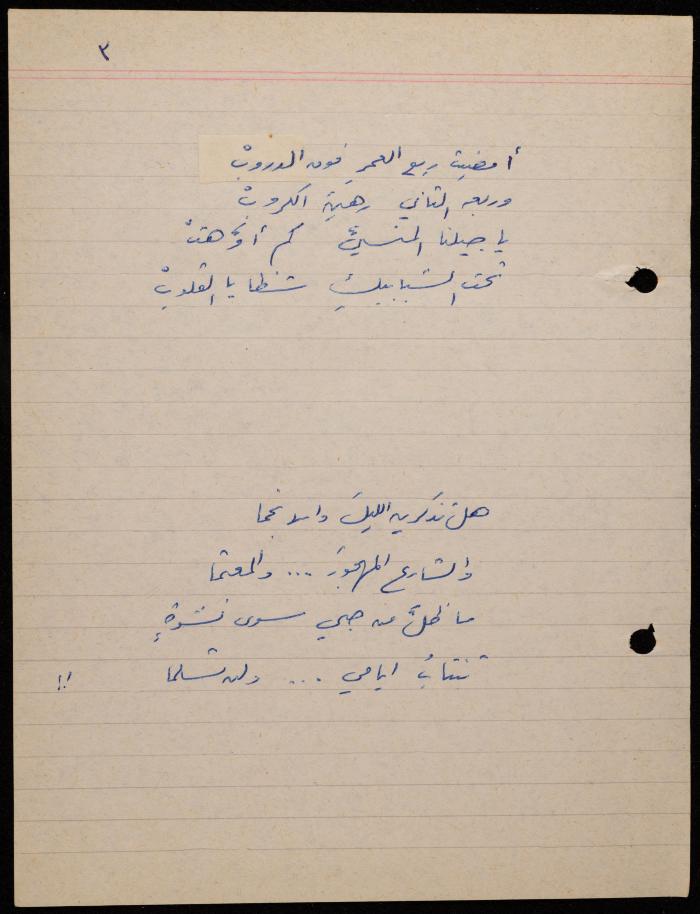 ٣
أمضيت ربع العمرِ فوق الدروبْ
وربعه الثاني رهين الكروبْ
يا جيلنا المنسيَّ كم أوَّهتْ
تحت الشبابيكِ شظايا القلوبْ
هل تذكرين الليلَ والأنجما
والشارع المهجورَ ... والمعتما
ما ظلَّ من حبي سوى نشوةٍ
تنتابُ ايامي ... ولن تسلما !!